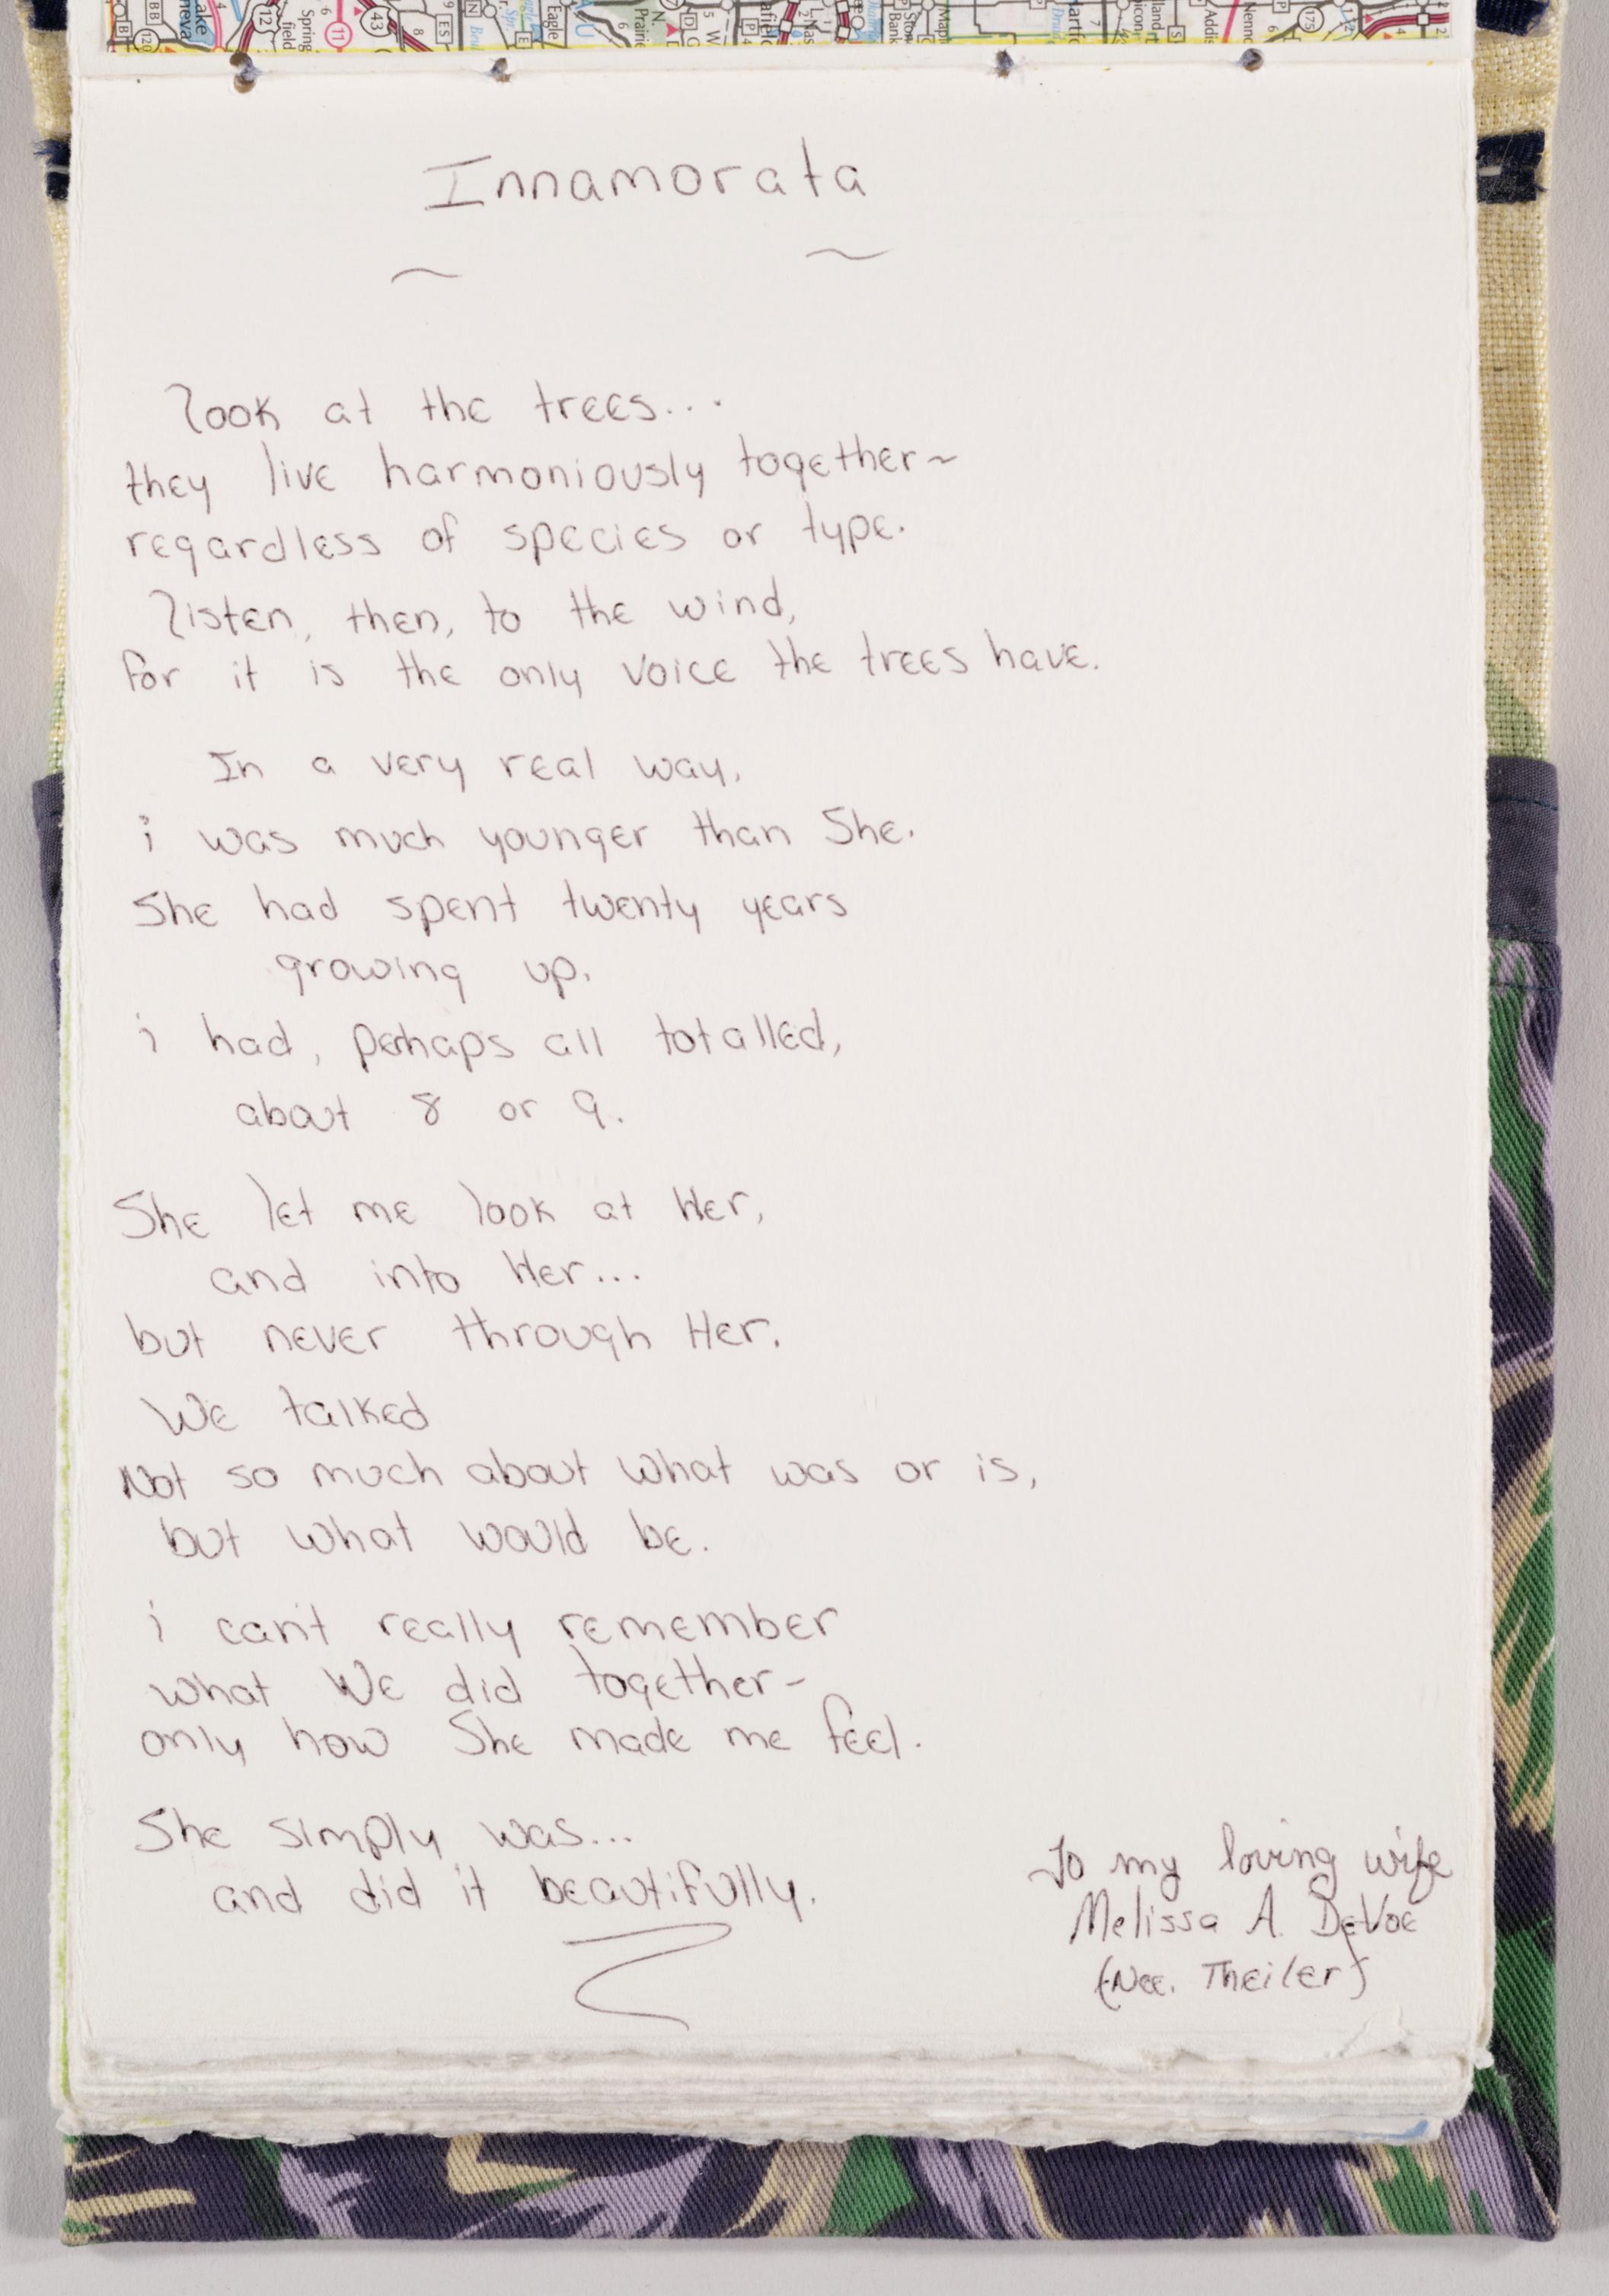 Innamorata
~ ~
look at the trees...
they live harmoniously together~
regardless of species or type.
listen, then, to the wind,
for it is the only voice the trees have.
In a very real way,
i was much younger than She.
She had spent twenty years
growing up.
i had, perhaps all totalled,
about 8 or 9.
She let me look at Her,
and into Her...
but never through Her.
We talked
Not so much about what was or is,
but what would be.
i can't really remember
what We did together-
only how She made me feel.
She simply was...
and did it beautifully.
To my loving wife
Melissa A. DeVoe
(Nee. Theiler)